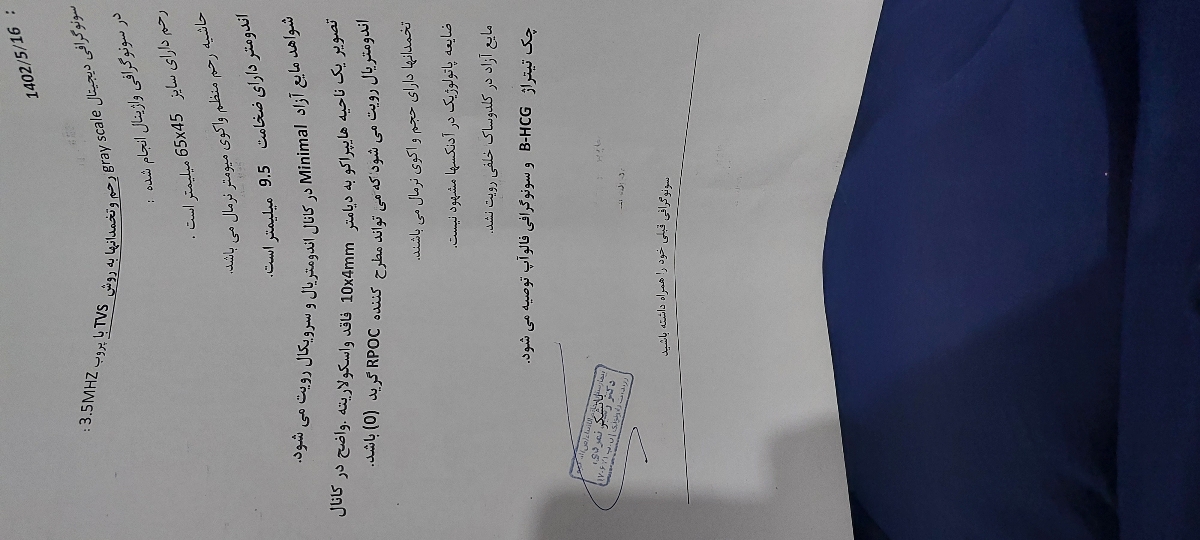 1402/5/16 :
سونوگرافی دیجیتال gray scale رحم و تخمدانها به روش TVS با پروب 3.5MHZ :
در سونوگرافی واژینال انجام شده :
رحم دارای سایز 65x45 میلیمتر است .
حاشیه رحم منظم واکوی میومتر نرمال می باشد.
اندومتر دارای ضخامت 9.5 میلیمتر است.
شواهد مایع آزاد Minimal در کانال اندومتریال و سرویکال رویت می شود.
تصویر یک ناحیه هایپراکو به دیامتر 10x4mm فاقد واسکولاریته .واضح در کانال
اندومتریال رویت می شود که می تواند مطرح کننده RPOC گرید (0) باشد.
تخمدانها دارای حجم و اکوی نرمال می باشند.
ضایعه پاتولوژیک در آدنکسها مشهود نیست.
مایع آزاد در کلدوساک خلفی رویت نشد.
چک تیتراژ B-HCG و سونوگرافی فالوآپ توصیه می شود.
سونوگرافی قبلی خود را همراه داشته باشید